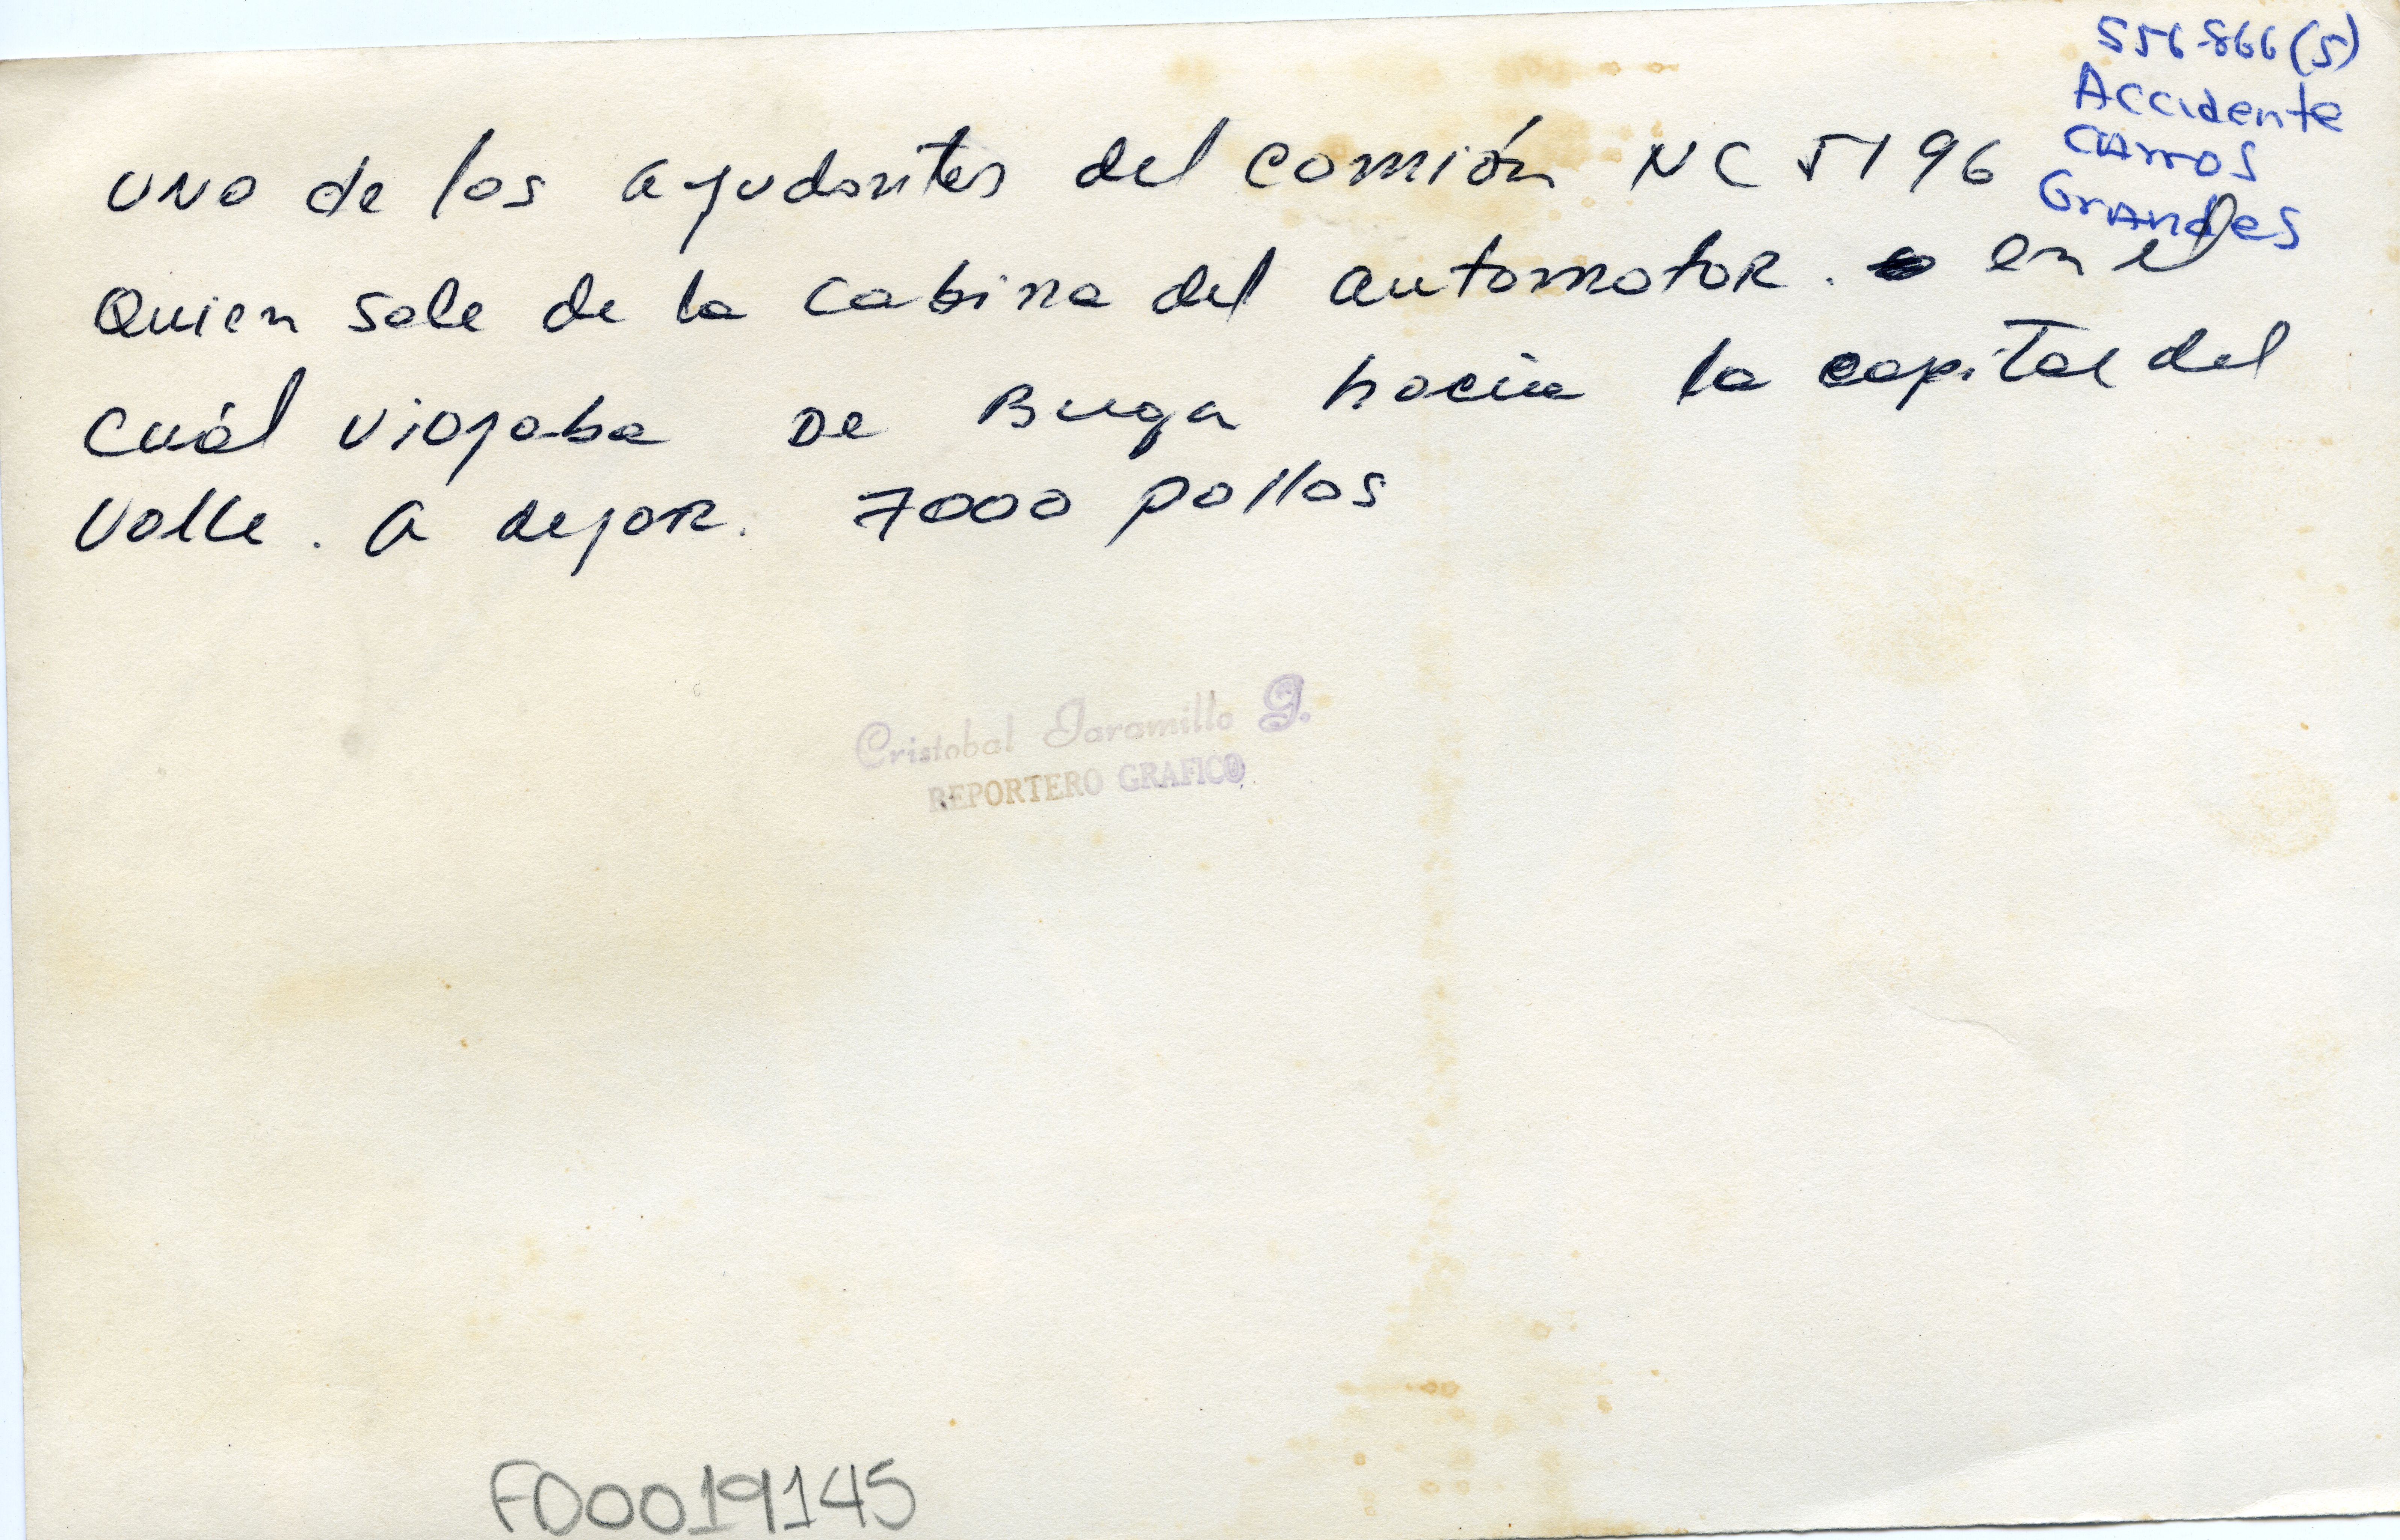 556-866(5)
Accidente
CArros
GrAndes
UNO de los ayudantes del camión NC 5196
Quien sale de la cabina del automotoR. en el
cuál viajaba De Buga hacia la capital del
Valle. a dejaR. 7000 pollos
Cristobal Jaramillo G.
REPORTERO GRAFICO
FD0019145